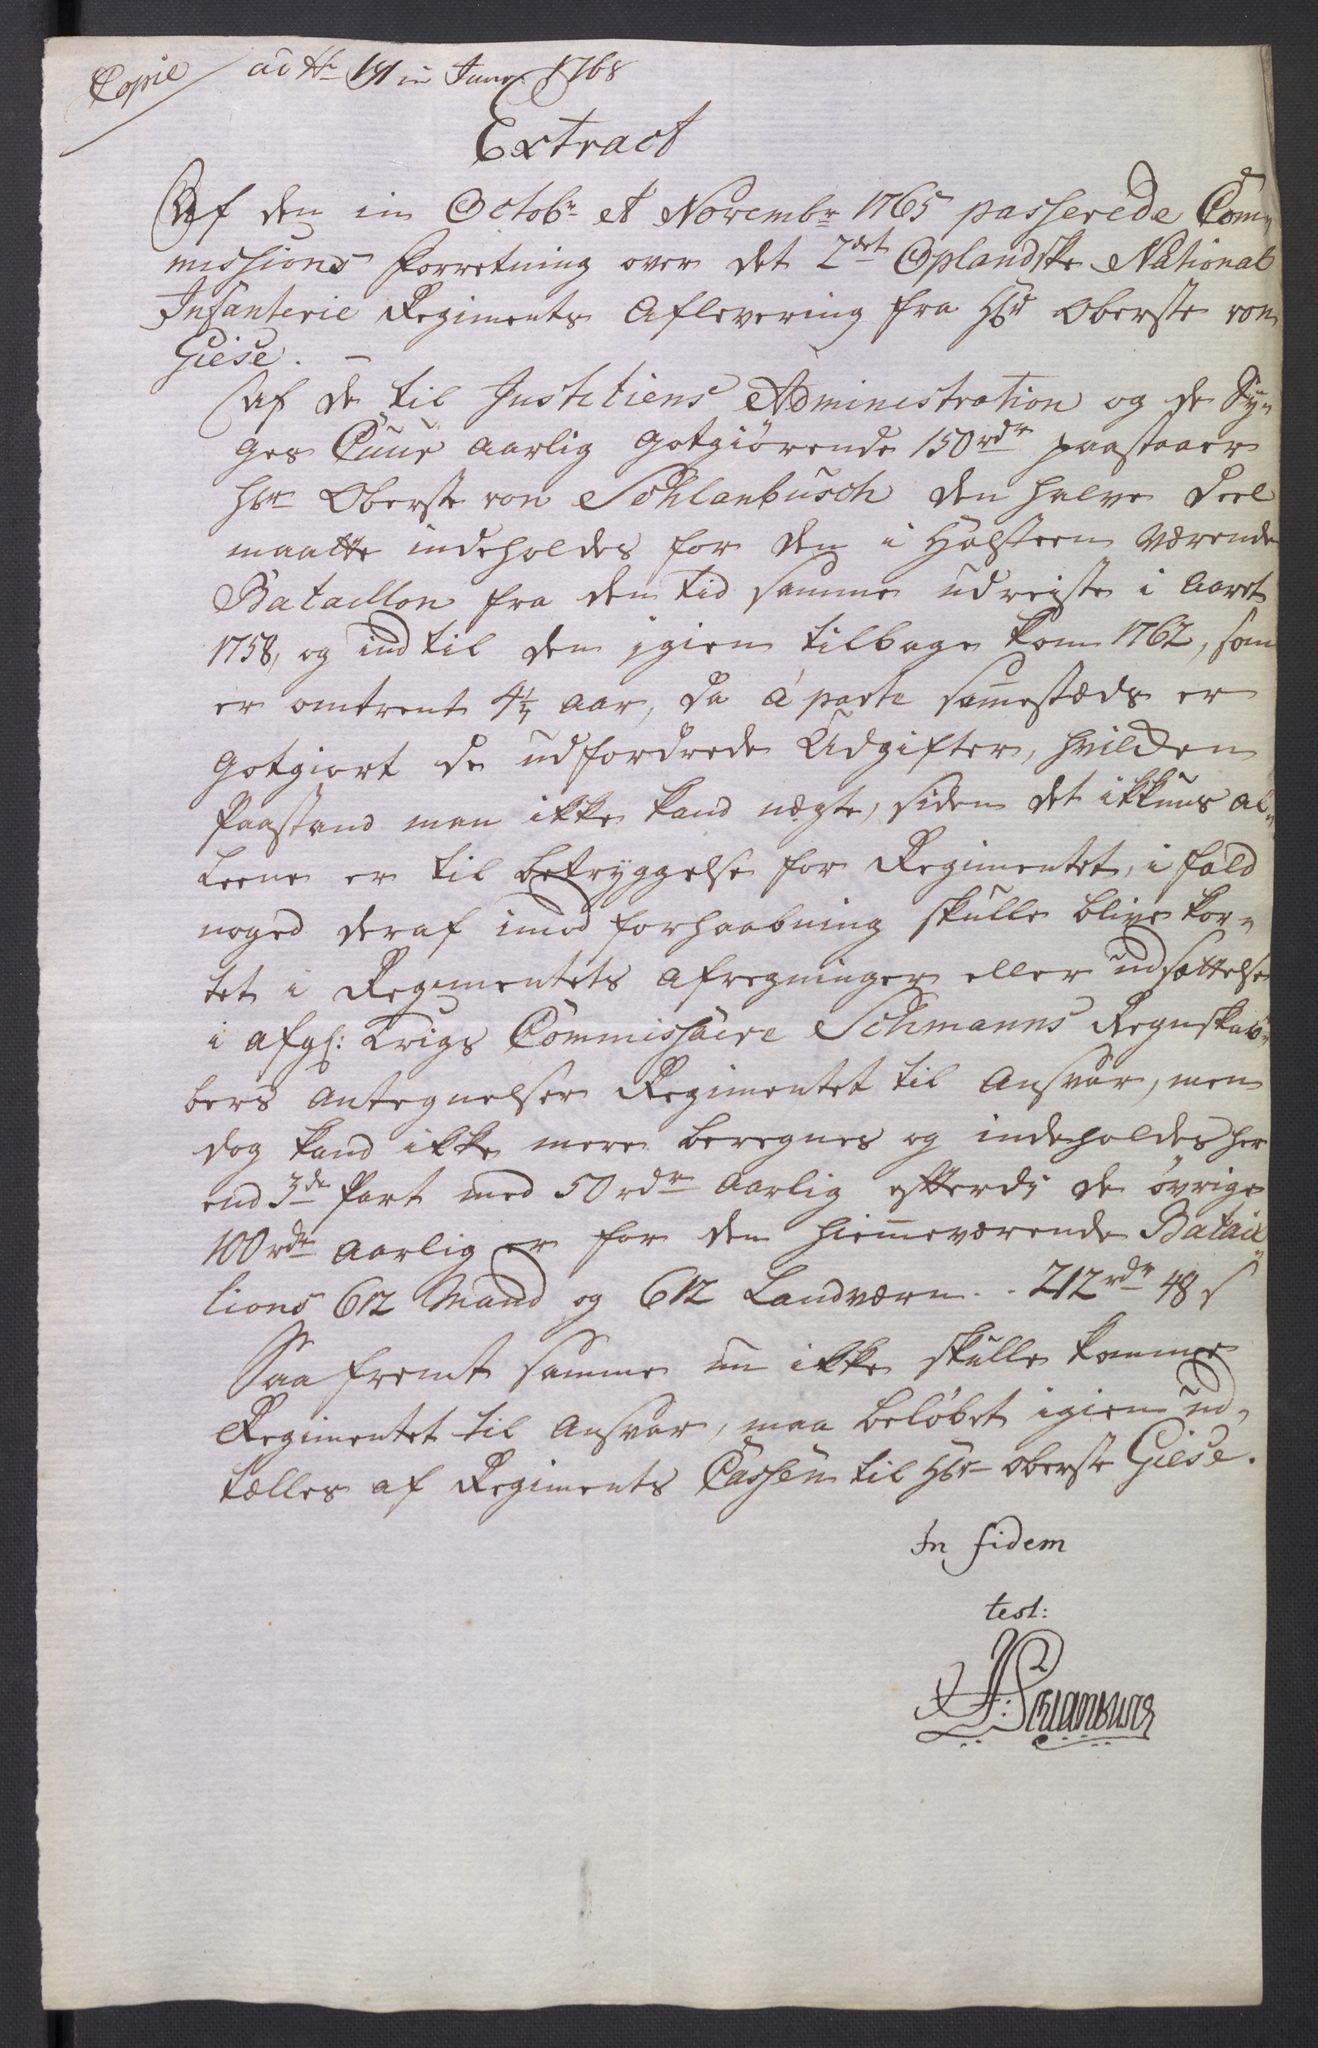 Copie
ad No 191 in Janr. 1768
Extract
Af den in Octobr et Novembr 1765 passerede Com-
missions Forretning over det 2det Oplandske National
Infanterie Regiments Aflevering fra Hr Oberste von
Giese. -
Af de til Justitiens Administration og de Sy-
ges Cuur Aarlig Gotgiörende 150 rdr paastaaer
Hr Oberste von Schlanbusch den halve Deel
maatte indeholdes for den i Holsteen Værende
Bataillon fra den Tid samme udreiste i Aaret
1758, og indtil den igien tilbage kom 1762, som
er omtrent 4¼ Aar, da á parte sammestæds er
Gotgiort de udfordrede Udgifter, hvilken
Paastand man ikke kand nægte, siden det ikkuns al-
leene er til betryggelse for Regimentet, i fald
noged deraf imod forhaabning skulle blive kor-
tet i Regimentets Afregninger eller udsættelse
i afg: Krigs Commissaire Schmanns Regnskab-
bers Antegnelser Regimentet til Ansvar, men
dog kand ikke mere beregnes og indeholdes her
end 3de Part med 50 rdr Aarlig efterdi de övrige
100 rdr Aarlig er for den hiemmeværende Batail
lions 612 Mand og 612 Landværn . . 212 rdr 48 s
Saafremt samme nu ikke skulle komme
Regimentet til Ansvar, maa beløbet igien ud-
tælles af Regiments Cassen til Hr Oberste Giese.
In fidem
test:
Schlanbusch